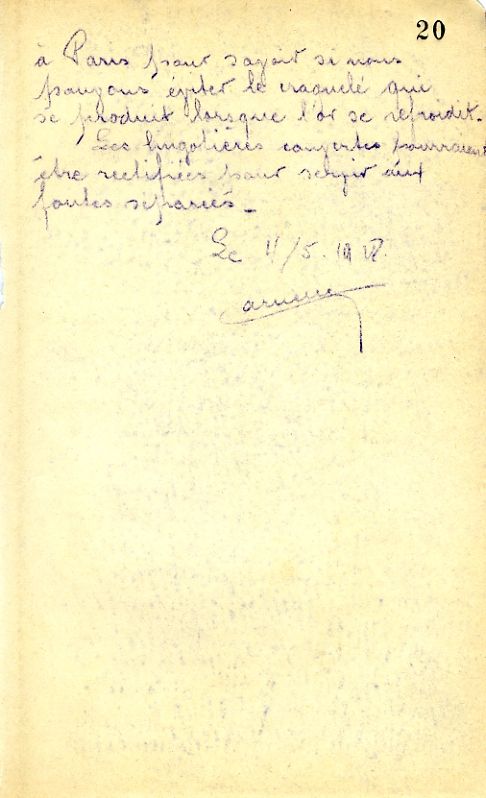 20
à Paris pour savoir si nous
pouvons éviter le craquelé qui
se produit lorsque l'or se refroidit.
Les lingotières ouvertes pourraient
être rectifiées pour servir aux
fontes séparées _
Le 4/5.